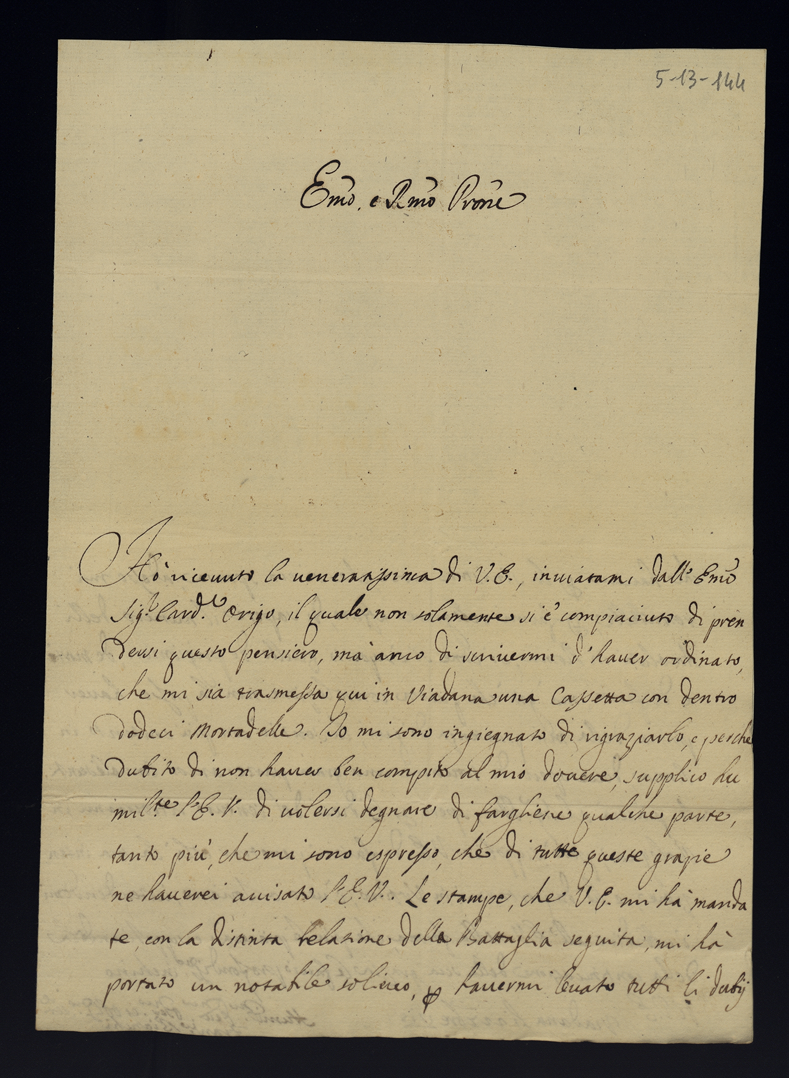 5-13-144
Emo, e Rmo Prone
Hò riceuuto la ueneratissima di V.E., inuiatami dall'Emo
Sigr Cardle Origo, il quale non solamente si è compiaciuto di pren
dersi questo pensiero, mà anco di scriuermi d'hauer ordinato,
che mi sia trasmessa qui in Viadana una Cassetta con dentro
dodeci Mortadelle. Io mi sono ingiegnato di rigraziarlo, e perche
dubito di non hauer ben compito al mio douere, supplico hu
milte l'E.V. di uolersi degnare di fargliene qualche parte,
tanto più, che mi sono espresso, che di tutte queste grazie
ne hauerei auisato l'E.V. Le stampe, che V.E. mi hà manda
te, con la distinta relazione della Battaglia seguita, mi hà
portato un notabile solieuo, p hauermi leuato tutti li dubij